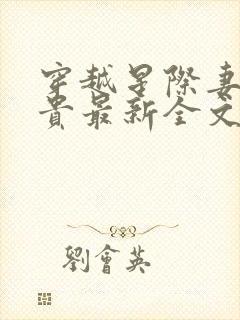 穿越星際妻
貴最新全文
劉會英